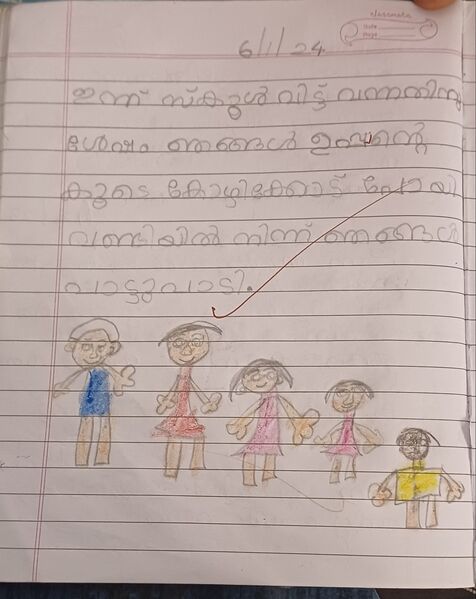 classmate
Date
Page
6/1/24
ഇന്ന് സ്കൂൾ വിട്ട് വന്നതിനു
ശേഷം ഞങ്ങൾ ഉപ്പാന്റെ
കൂടെ കോഴിക്കോട് പോയി
വണ്ടിയിൽ നിന്ന് ഞങ്ങൾ
പാട്ടുപാടി.